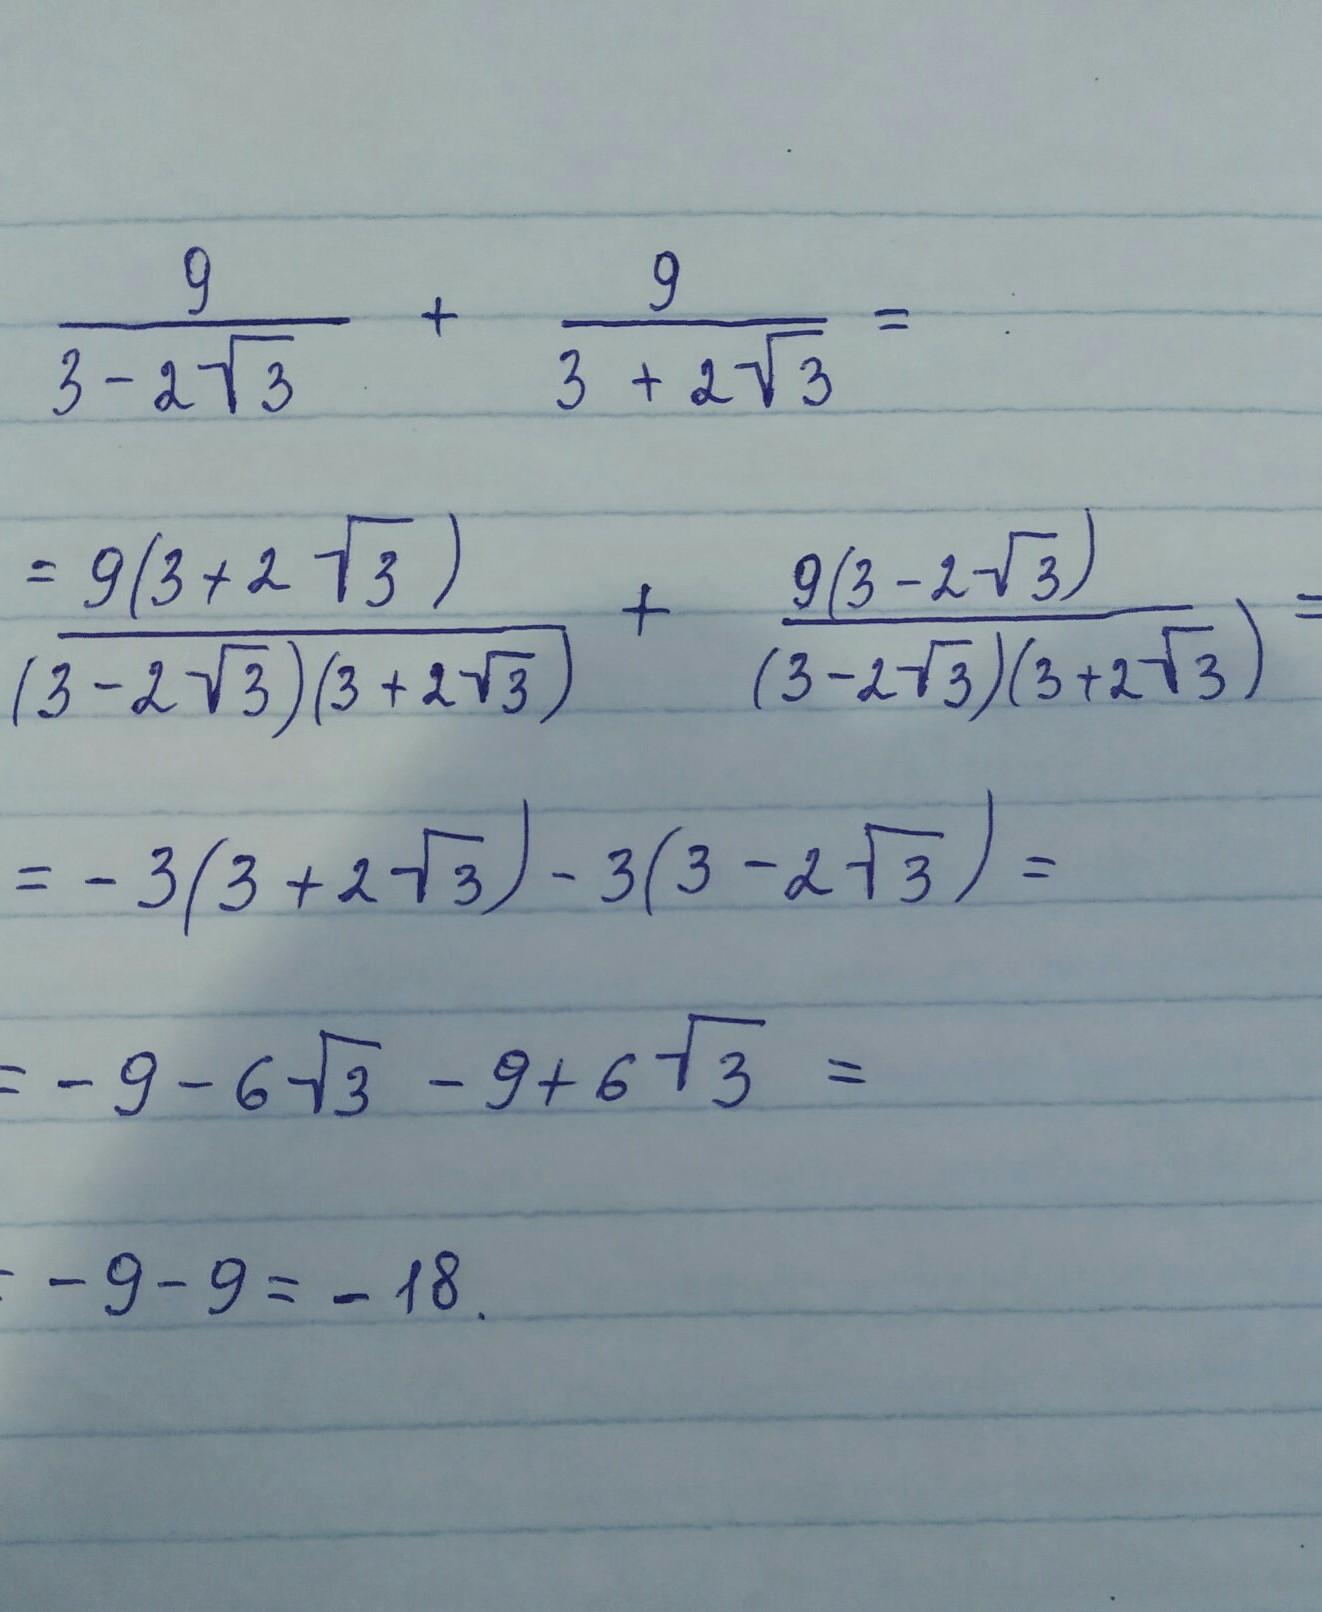 9/(3-2√3) + 9/(3+2√3) =
= 9(3+2√3)/((3-2√3)(3+2√3)) + 9(3-2√3)/((3-2√3)(3+2√3)) =
= -3(3+2√3) - 3(3-2√3) =
= -9-6√3 -9+6√3 =
= -9-9 = -18.